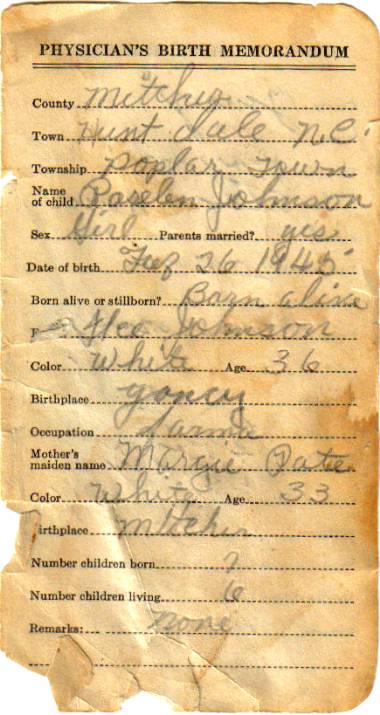 PHYSICIAN'S BIRTH MEMORANDUM
County Mitchell
Town Hunt dale N.C.
Township Poplar Town
Name
of child Johnson
Sex Girl Parents married? yes
Date of birth 26 1945
Born alive or stillborn? Born alive
F Geo Johnson
Color White Age 36
Birthplace yancy
Occupation farmer
Mother's
maiden name Margie Pate
Color White Age 33
irthplace Mitchell
Number children born 7
Number children living 6
Remarks: none